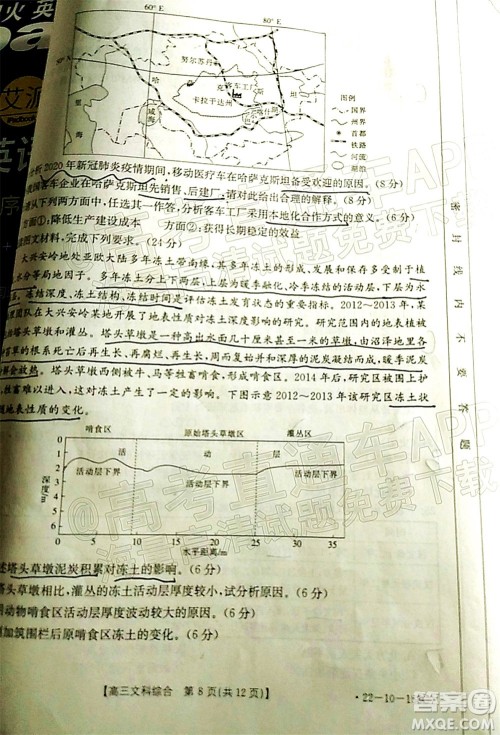 60°E 80°E
努尔苏丹
克客车工厂
卡拉干达州
里
海
咸
海
图例
国界
州界
首都
铁路
河流
湖泊
分析2020年新冠肺炎疫情期间，移动医疗车在哈萨克斯坦备受欢迎的原因。(8分)
我国客车企业在哈萨克斯坦先销售，后建厂，请对此给出合理的解释。(8分)
从下列两方面中，任选一方面，分析客车工厂采用本地化合作方式的意义。(6分)
方面①：降低生产建设成本 方面②：获得长期稳定的效益
图文材料，完成下列要求。(24分)
大兴安岭地处亚欧大陆多年冻土带南缘，其多年冻土的形成、发展与消亡多受制于植
、水分等局地因子。多年冻土分上下两层，上层为暖季融化、冷季冻结的活动层，下层为永
。冻结深度、冻土结构、冻结时间是评估冻土发育状态的重要指标。2012～2013年，某
团队在大兴安岭某地开展了地表性质对冻土深度影响的研究。研究范围内的地表植被
塔头草墩。塔头草墩是一种高出水面几十厘米甚至一米的草墩，由沼泽地里各种苔草
草的根系死亡后再生长、再腐烂、再生长，周而复始并和深厚的泥炭凝结而成，暖季泥炭
鲜会放热。西南坡田鼠、牛、马等牲畜啃食，形成啃食区。2014年，研究区被围上了护
，牲畜难以进入，这对冻土产生了一定的影响。下图示意2012～2013年该研究区冻土状
地表性质的变化。
啃食区 原始塔头草墩区 灌丛区
活 动 层
活动层下界 活动层下界 活动层下界
深度/m
0
1
2
3
4
5
6
0 5 10 15 20 25 30 35
水平距离/m
述塔头草墩泥炭积累对冻土的影响。(6分)
塔头草墩相比，灌丛的冻土活动层厚度较小，试分析原因。(6分)
动物啃食区活动层厚度波动较大的原因。(6分)
加筑围栏后原啃食区冻土的变化。(6分)
【高三文科综合 第8页(共12页)】
·22-10-1
密
封
线
内
不
要
答
题
高考直通车APP
海量高清试题免费下载
作业帮
MXQE.COM